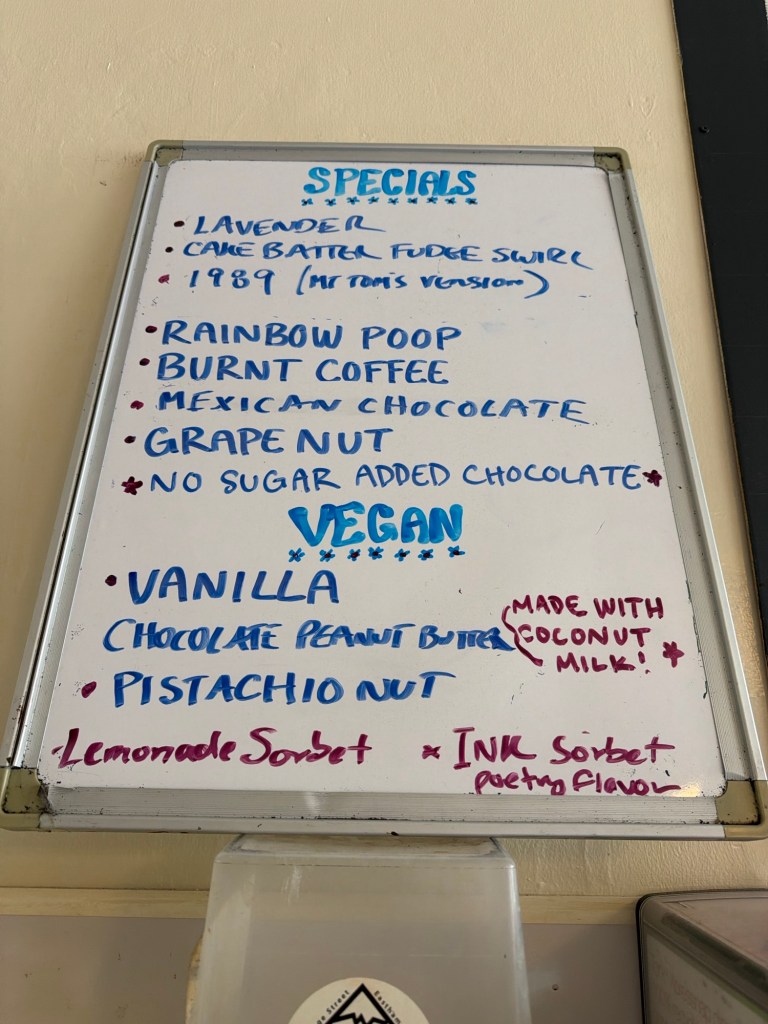 SPECIALS
• LAVENDER
• CAKE BATTER FUDGE SWIRL
• 1989 (Mr Tom's Version)
• RAINBOW POOP
• BURNT COFFEE
• MEXICAN CHOCOLATE
• GRAPE NUT
* NO SUGAR ADDED CHOCOLATE *
VEGAN
• VANILLA
CHOCOLATE PEANUT BUTTER
• PISTACHIO NUT
MADE WITH
COCONUT
MILK! *
- Lemonade Sorbet
* INK Sorbet
poetry flavor
Street Eastham